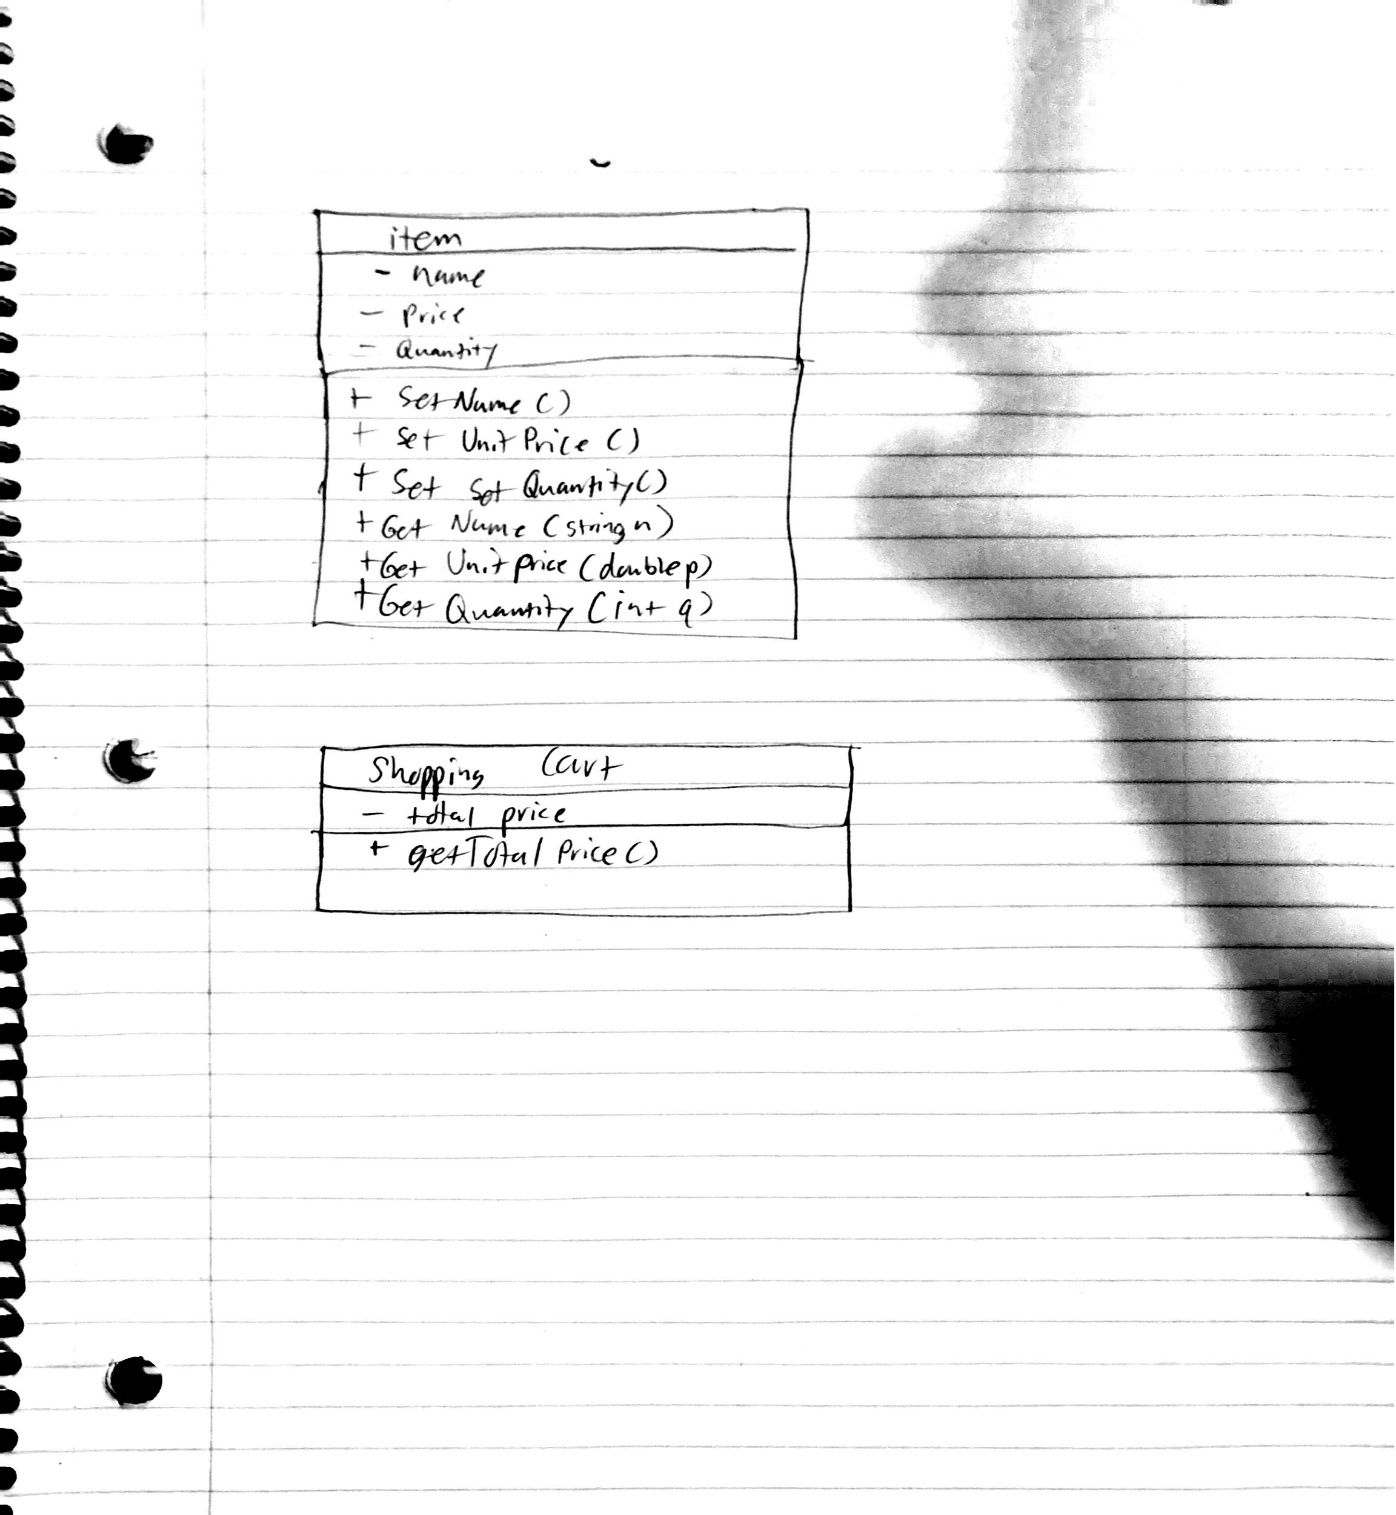 item
- name
- Price
- Quantity
+ SetName ()
+ Set Unit Price ()
+ Set Set Quantity()
+ Get Name (string n)
+ Get Unit price (double p)
+ Get Quantity (int q)
Shopping Cart
- total price
+ getTotal Price()